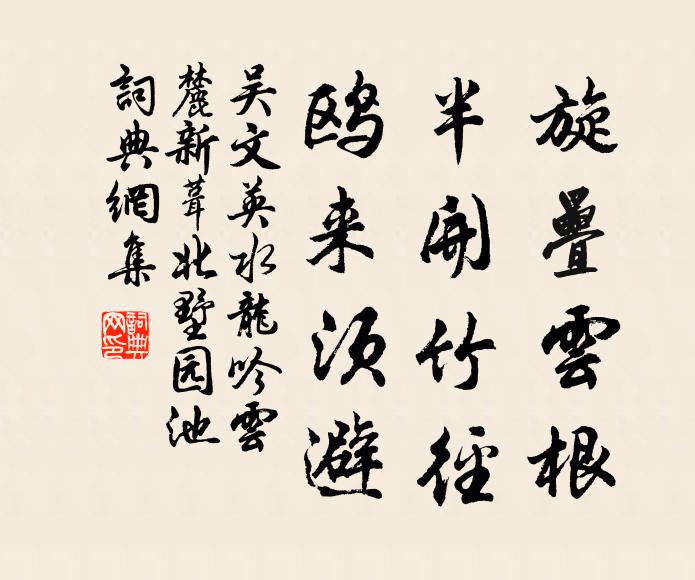 旋疊雲根
半開竹徑
鸥来须避
吴文英水龍吟雲
麓新葺北墅园池
詞典網集
詞典
网印